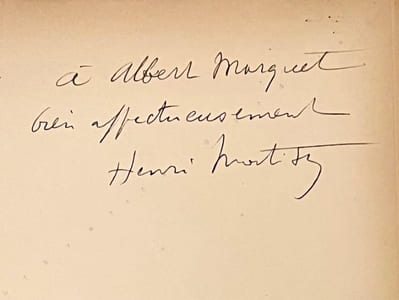 à Albert Marquet
bien affectueusement
Henri